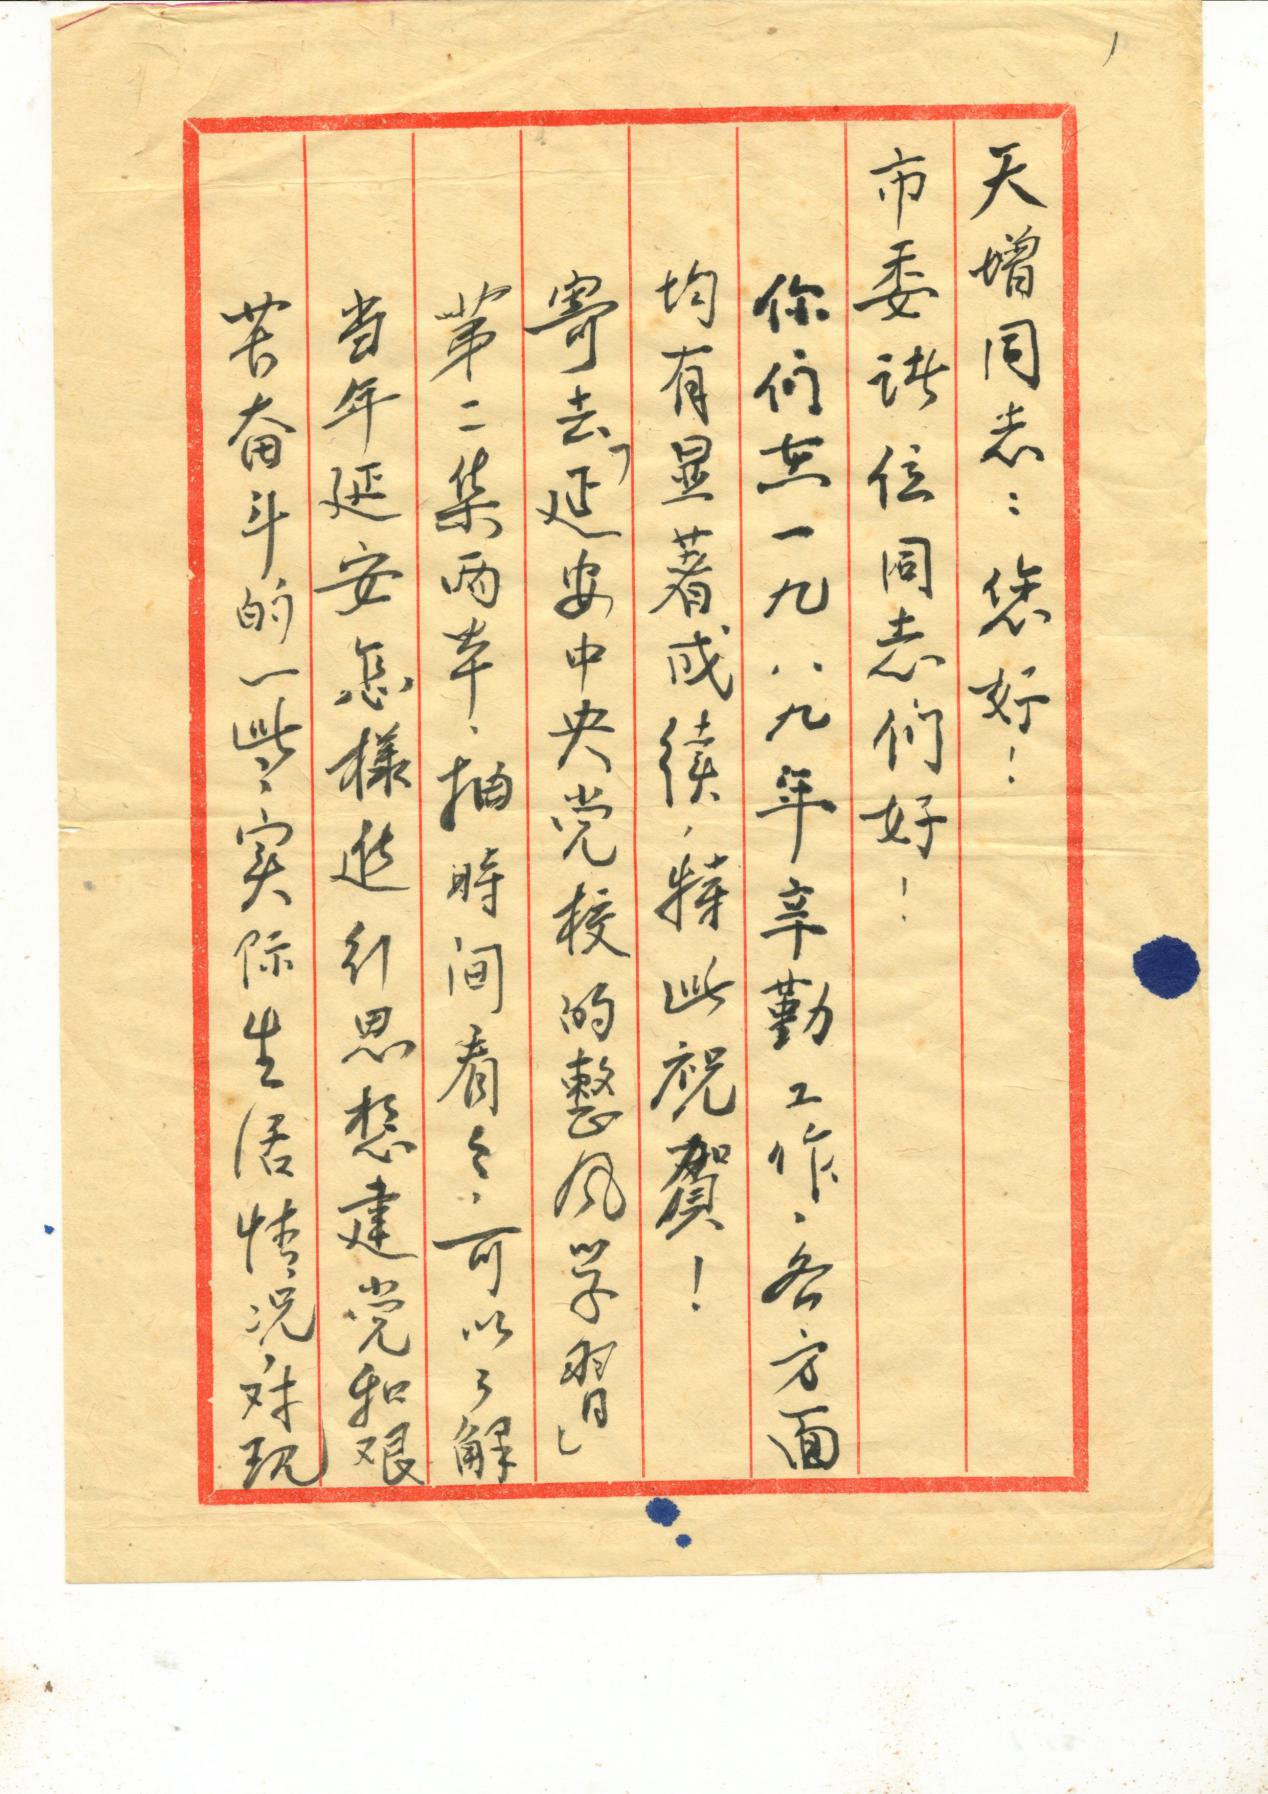 1
天增同志：您好！
市委諸位同志们好！
你们在一九八九年辛勤工作，各方面
均有显著成績，特此祝賀！
寄去「延安中央党校的整风学習」
第二集两本，抽時间看看，可以了解
当年延安怎樣進行思想建党和艰
苦奋斗的一些实际生活情况，对现